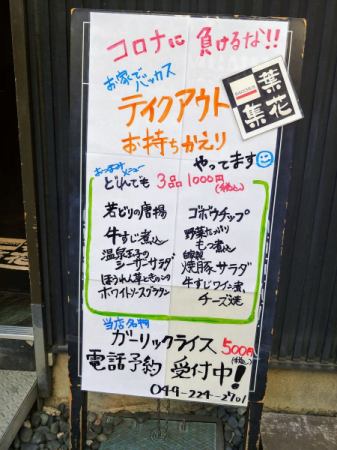 コロナに 負けるな!!
お家でバッカス
BACCHUS
葉花集
テイクアウト
お持ちかえり
やってます
おつまみメニュー
どれでも 3品1000円(税込)
若どりの唐揚
牛すじ煮込
温泉玉子の
シーザーサラダ
ほうれん草ときのこの
ホワイトソースグラタン
ゴボウチップ
野菜たっぷり
もつ煮込
自家製
焼豚サラダ
牛すじワイン煮
チーズ焼
当店名物
ガーリックライス 500円(税込)
電話予約 受付中!
049-224-2701